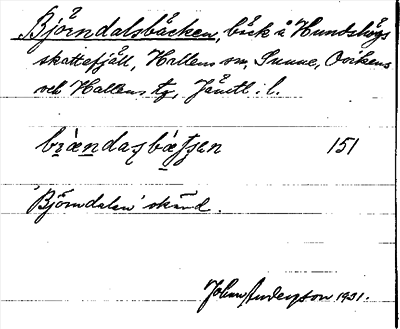 Björndalsbäcken, bäck å Hundshögs
skattefjäll, Hallens sn, Sunne, Ovikens
och Hallens tg, Jämtl. l.
151
'Björndalen' skånd.
Johan Anderzson 1931.